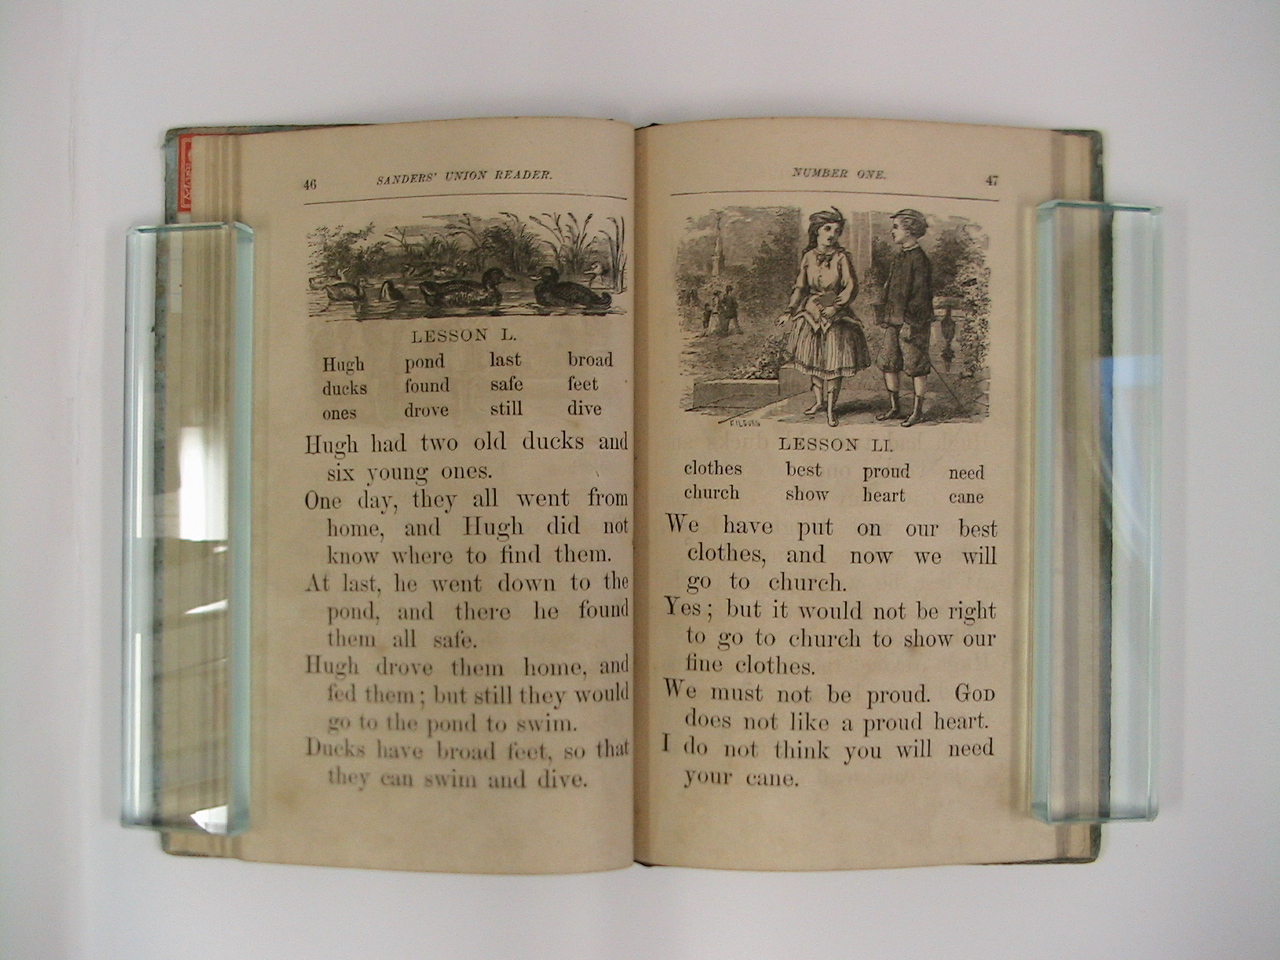 46
SANDERS' UNION READER.
LESSON L.
Hugh pond last broad
ducks found safe feet
ones drove still dive
Hugh had two old ducks and
six young ones.
One day, they all went from
home, and Hugh did not
know where to find them.
At last, he went down to the
pond, and there he found
them all safe.
Hugh drove them home, and
fed them; but still they would
go to the pond to swim.
Ducks have broad feet, so that
they can swim and dive.
NUMBER ONE.
47
LESSON LI.
clothes best proud need
church show heart cane
We have put on our best
clothes, and now we will
go to church.
Yes; but it would not be right
to go to church to show our
fine clothes.
We must not be proud. GOD
does not like a proud heart.
I do not think you will need
your cane.